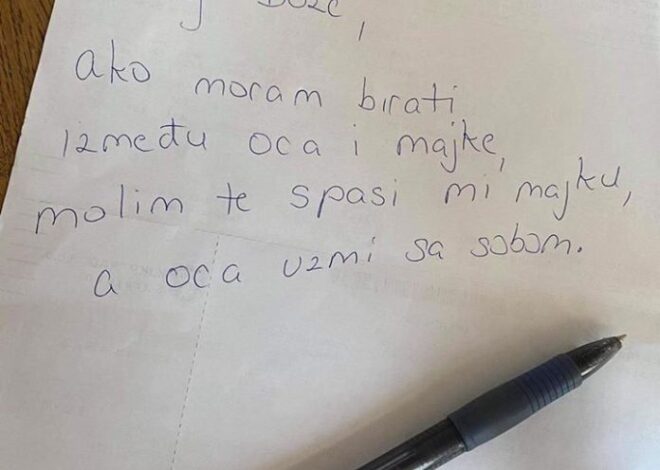 Bože,
ako moram birati
između oca i majke,
molim te spasi mi majku,
a oca uzmi sa sobom.